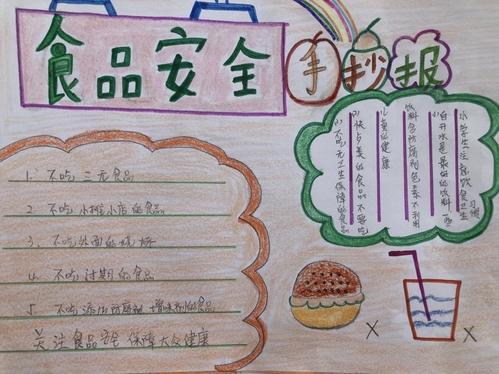 食品安全手抄报
小学生注意饮食卫生习惯
白开水是最好的饮料 一些
饮料含防腐剂色素不利用
儿童的健康
不吃无卫生保障的食品
1. 不吃三无食品
2. 不吃小摊小店的食品
3. 不吃外面的烧烤
4. 不吃过期的食品
5. 不吃添加防腐剂 增味剂的食品
关注食品安全 保障大众健康
X X